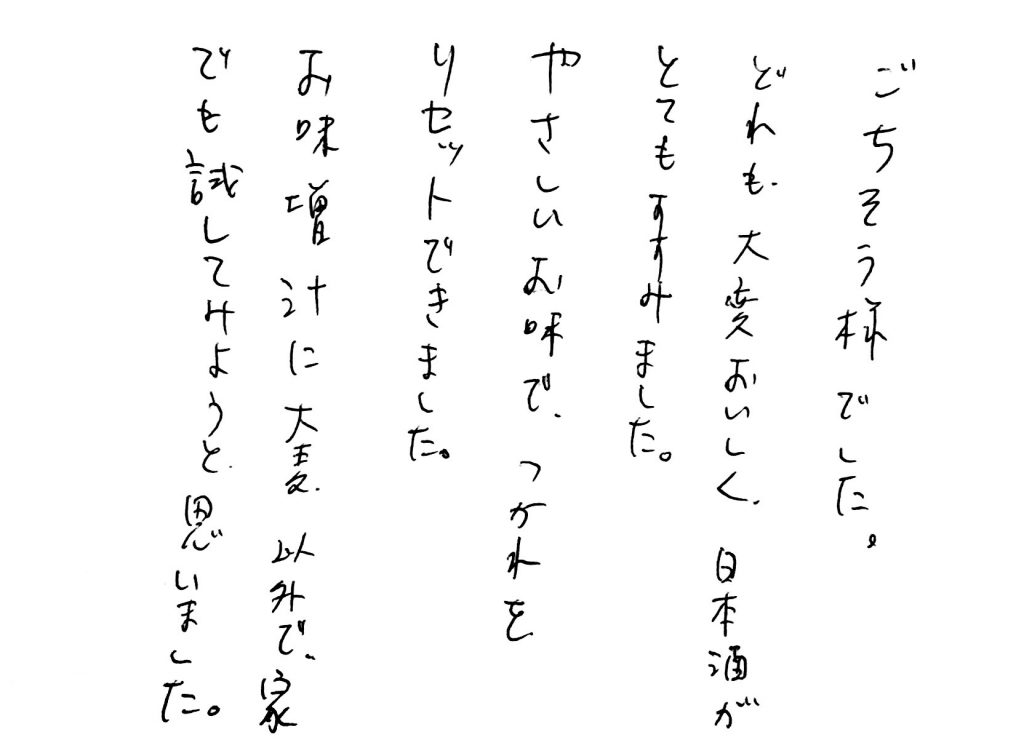 ごちそう様でした。
どれも、大変おいしく、日本酒が
とてもすすみました。
やさしいお味で、つかれを
リセットできました。
お味増汁に大麦、以外で、家
でも試してみようと、思いました。